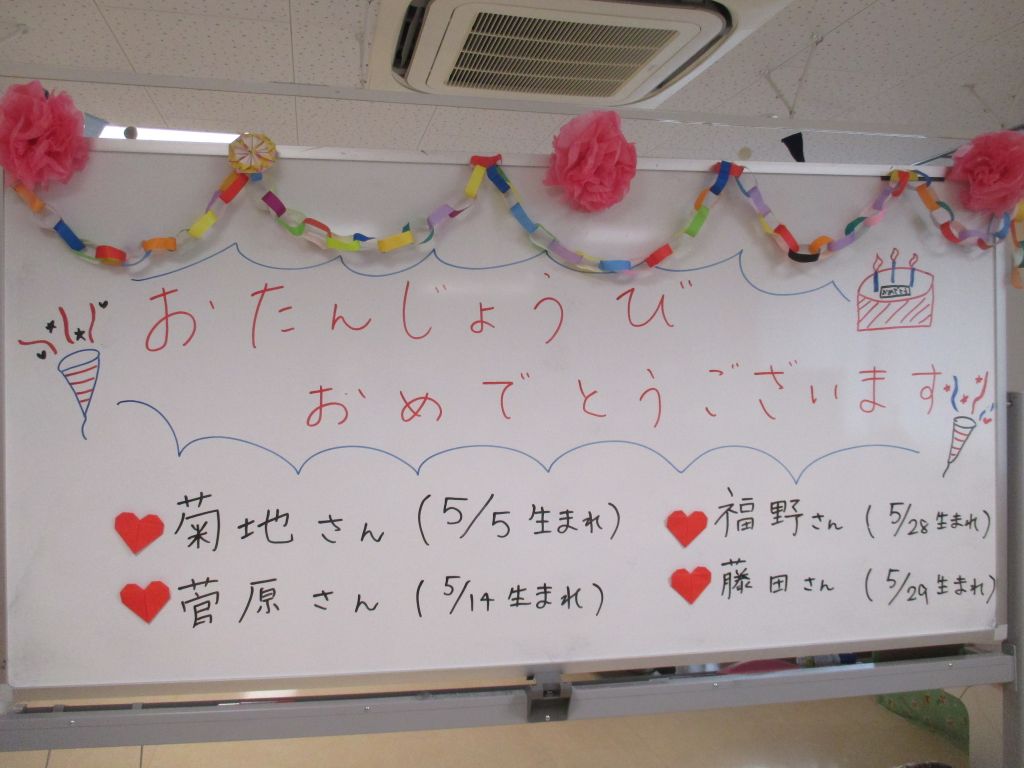 おたんじょうび
おめでとうございます
菊地さん (5/5 生まれ)
菅原さん (5/14 生まれ)
福野さん (5/28 生まれ)
藤田さん (5/29 生まれ)